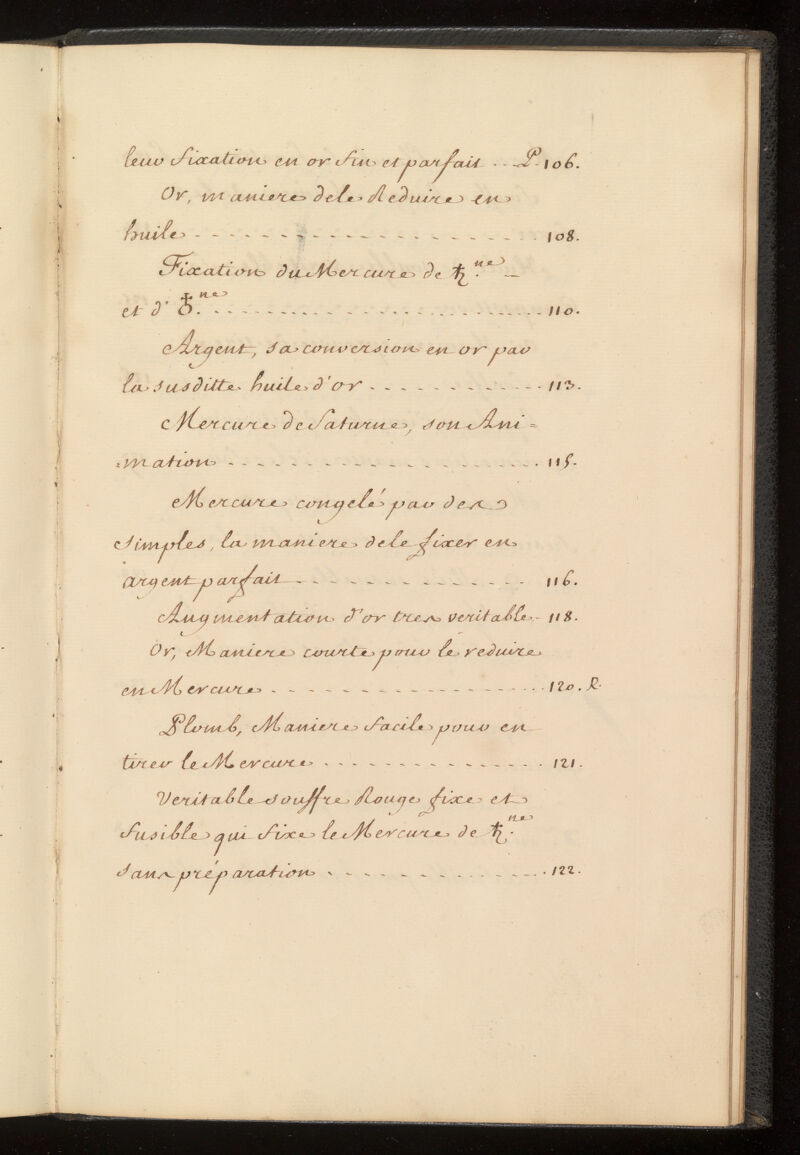 leur fixation en or fin et parfait - - P. 106.
Or, maniere de le Reduire en
huile - - - - - - - - - - - - - - - - - - 108.
Fixation du Mercure de ♄.ne -
et d'♁.ne - - - - - - - - - - - - - - - - - 110.
Argent, sa conversion en or par
la susditte huile d'or - - - - - - - - - - 113.
Mercure de Saturne, son Ani=
=mation - - - - - - - - - - - - - - - - - 115.
Mercure congelé par des
simples, la maniere de le fixer en
argent parfait - - - - - - - - - - - - - 116.
Augmentation d'or tres veritable - 118.
Or, Maniere courte pour le reduire
en Mercure - - - - - - - - - - - - - - - 120. R.
Plomb, Maniere facile pour en
tirer le Mercure - - - - - - - - - - - - 121.
Veritable souffre Rouge fixe et
fusible qui fixe le Mercure de ♄.ne
sans préparation - - - - - - - - - - - - 122.